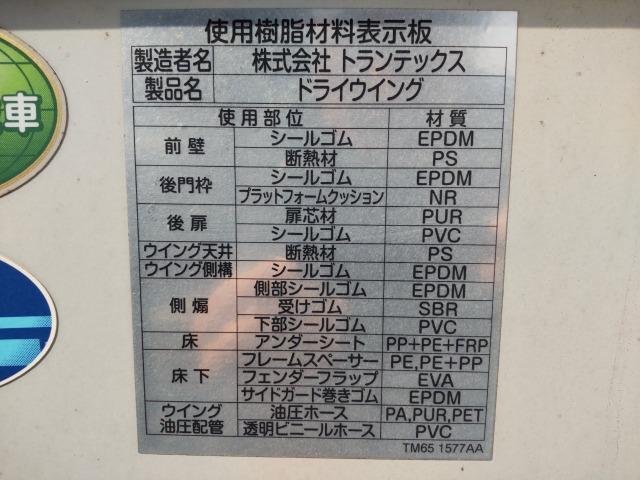 使用樹脂材料表示板
製造者名 株式会社 トランテックス
製品名 ドライウイング
使用部位 材質
前壁 シールゴム EPDM
断熱材 PS
後門枠 シールゴム EPDM
プラットフォームクッション NR
後扉 扉芯材 PUR
シールゴム PVC
ウイング天井 断熱材 PS
ウイング側構 シールゴム EPDM
側煽 側部シールゴム EPDM
受けゴム SBR
下部シールゴム PVC
床 アンダーシート PP+PE+FRP
床下 フレームスペーサー PE,PE+PP
フェンダーフラップ EVA
サイドガード巻きゴム EPDM
ウイング油圧配管 油圧ホース PA,PUR,PET
透明ビニールホース PVC
TM65 1577AA
車